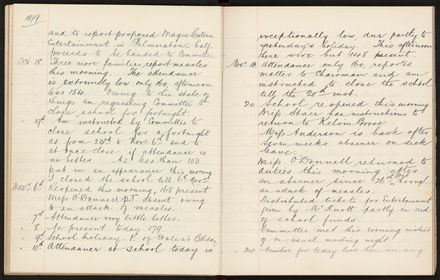 1899
and to report proposed Magic Lantern
Entertainment in Palmerston half
proceeds to be handed to Committee.
Oct 18th Three more families report measles
this morning. The attendance
is extremely low only 160, afternoon
less 154. Owing to this state of
things am requesting Committee to
close school for fortnight.
Am instructed by Committee to
close school for a fortnight
as from 23rd to Nov 6th and to
at once close if attendance is
no better. As less than 100
put in an appearance this morning
I closed the school till 6th Nov.
Nov. 6th Reopened this morning, 168 present
Miss O'Donnell P.T. absent owing
to an attack of measles.
7th Attendance very little better.
8 No present today 179.
9th School holiday P. of Wales's Bthday
10th Attendance at School today is
exceptionally low due partly to
yesterday's holiday. This afternoon
there were but 148 present.
Nov. Attendance only 160, reported
matter to Chairman and am
instructed to close the school
till the 20th inst.
20 School reopened this morning
Miss has instructions to
return to Grove.
Miss Anderson is back after
seven weeks absence on sick
leave.
Miss O'Donnell returned to
duties this morning after
an absence since through
an attack of measles.
Distributed tickets for Entertainment
given by Mr Knott partly in aid
of school funds.
Committee met this evening
usual meeting night.
21 Number for today less than